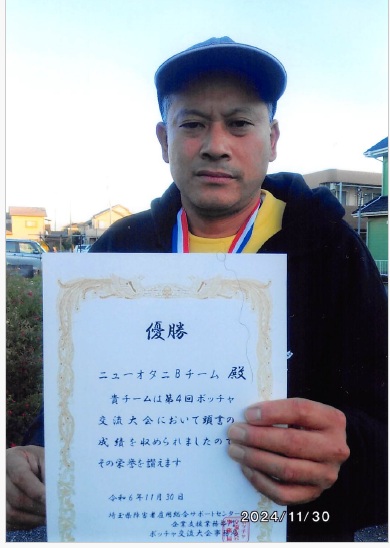 優勝
ニューオタニBチーム 殿
貴チームは第4回ボッチャ
交流大会において頭書の
成績を収められましたので
その栄誉を讃えます
令和6年11月30日
埼玉県障害者雇用総合サポートセンター
企業支援業務
ボッチャ交流大会事務局
2024/11/30